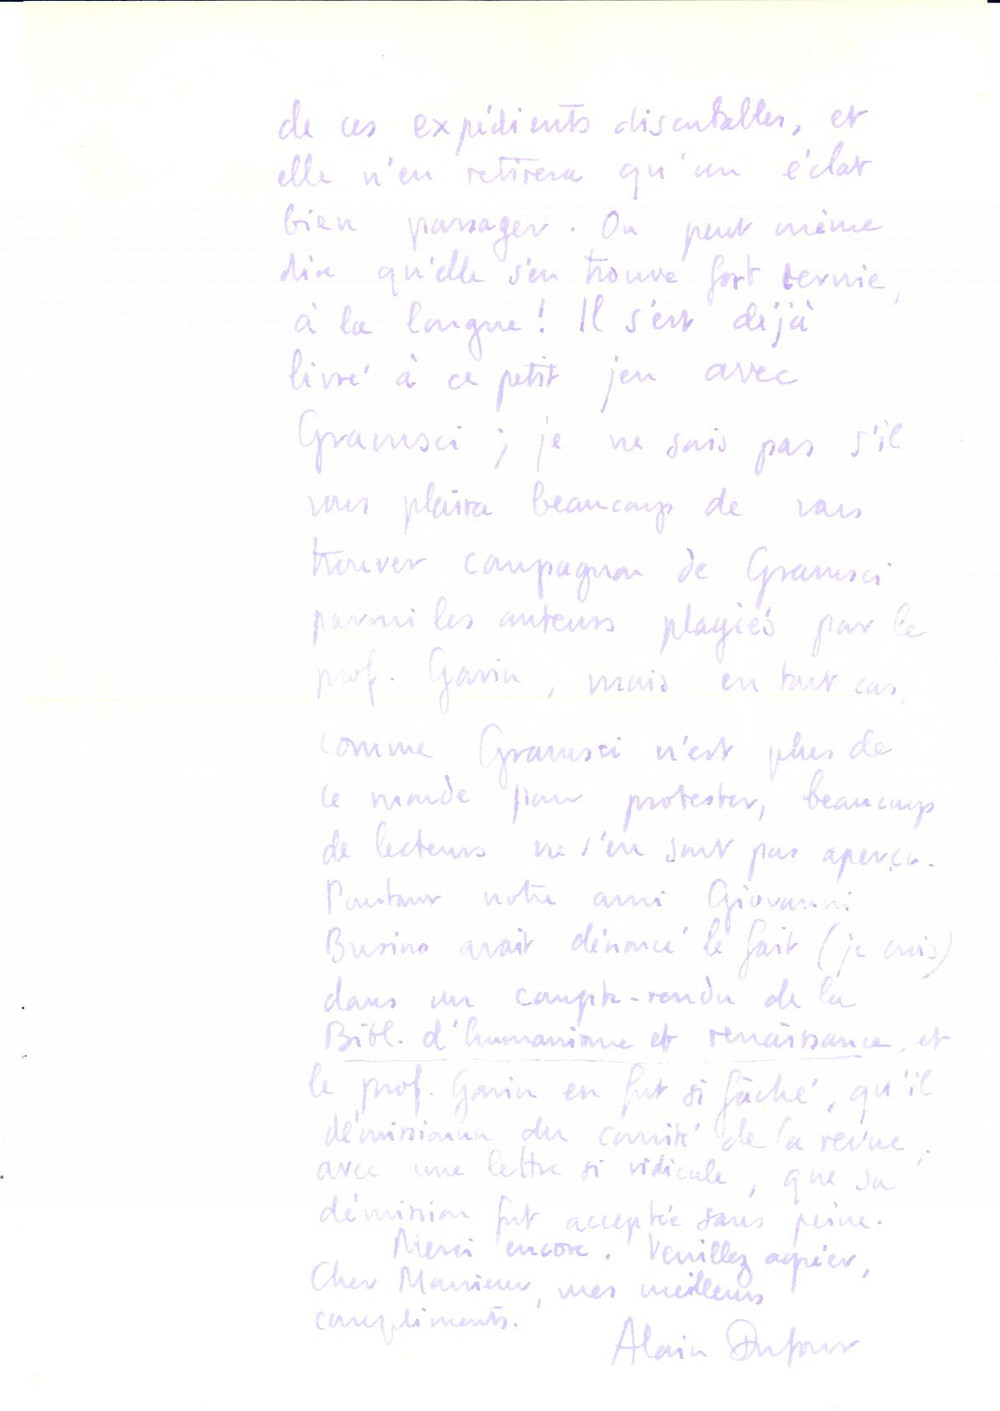 de ces expédients discutables, et
elle n'en retirera qu'un éclat
bien passager. On peut même
dire qu'elle s'en trouve fort ternie,
à la longue! Il s'est déjà
livré à ce petit jeu avec
Gramsci ; je ne sais pas s'il
vous plaira beaucoup de vous
trouver compagnon de Gramsci
parmi les auteurs plagiés par le
prof. Garin, mais en tout cas,
comme Gramsci n'est plus de
ce monde pour protester, beaucoup
de lecteurs ne s'en sont pas aperçu.
Pourtant notre ami Giovanni
Busino avait dénoncé le fait (je crois)
dans un compte-rendu de la
Bibl. d'humanisme et renaissance, et
le prof. Garin en fut si fâché, qu'il
démissionna du comité de la revue,
avec une lettre si ridicule, que sa
démission fut acceptée sans peine.
Merci encore. Veuillez agréer,
Cher Monsieur, mes meilleurs
compliments.
Alain Dufour